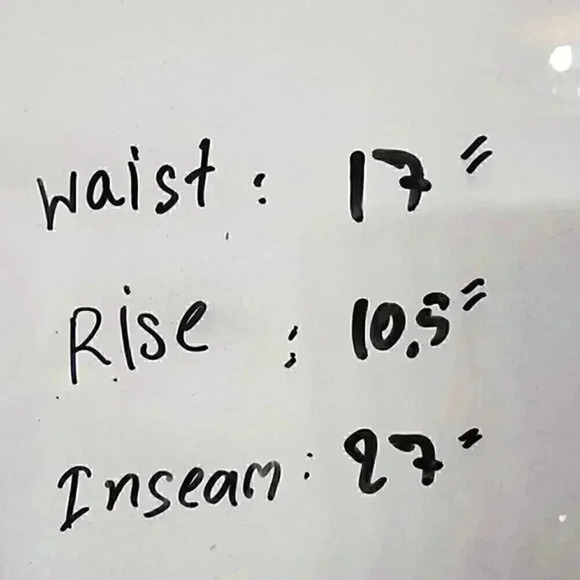 Waist : 17"
Rise : 10.5"
Inseam : 27"